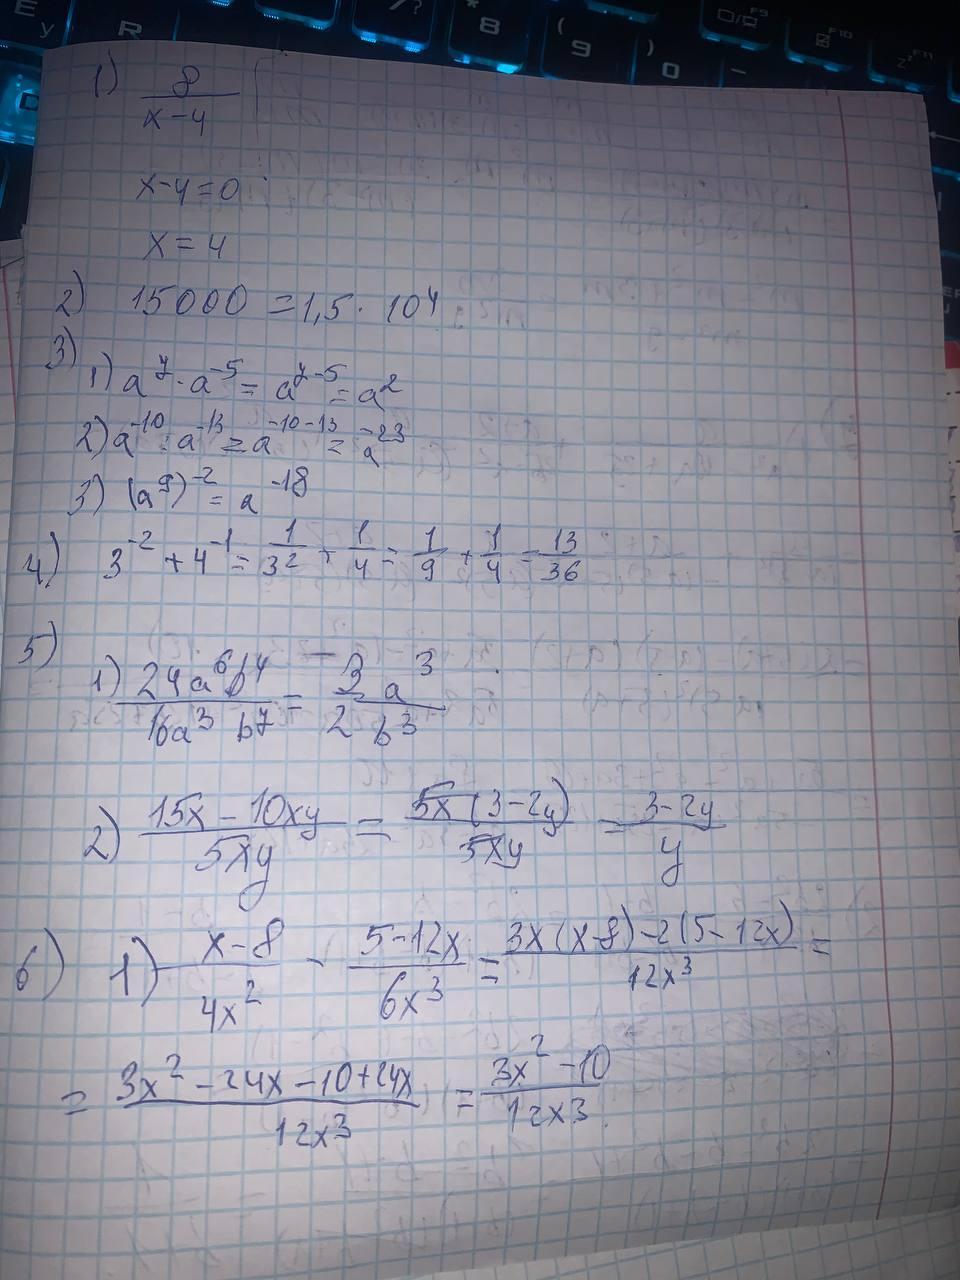 E
У
R
7?
*
8
(
9
)
0
-
F9
F10
F11
1) 8/(x-4)
x-4=0
x=4
2) 15000 = 1,5 · 10⁴
3)
1) a⁷ · a⁻⁵ = a⁷⁻⁵ = a²
2) a⁻¹⁰ : a⁻¹³ = a⁻¹⁰⁻¹³ = a⁻²³
3) (a⁹)⁻² = a⁻¹⁸
4) 3⁻² + 4⁻¹ = 1/3² + 1/4 = 1/9 + 1/4 = 13/36
5)
1) 24a⁶b⁴/16a³b⁷ = 3a³/2b³
2) (15x - 10xy)/5xy = 5x(3-2y)/5xy = (3-2y)/y
6) 1) (x-8)/4x² - (5-12x)/6x³ = (3x(x-8)-2(5-12x))/12x³ =
= (3x²-24x-10+24x)/12x³ = (3x²-10)/12x3